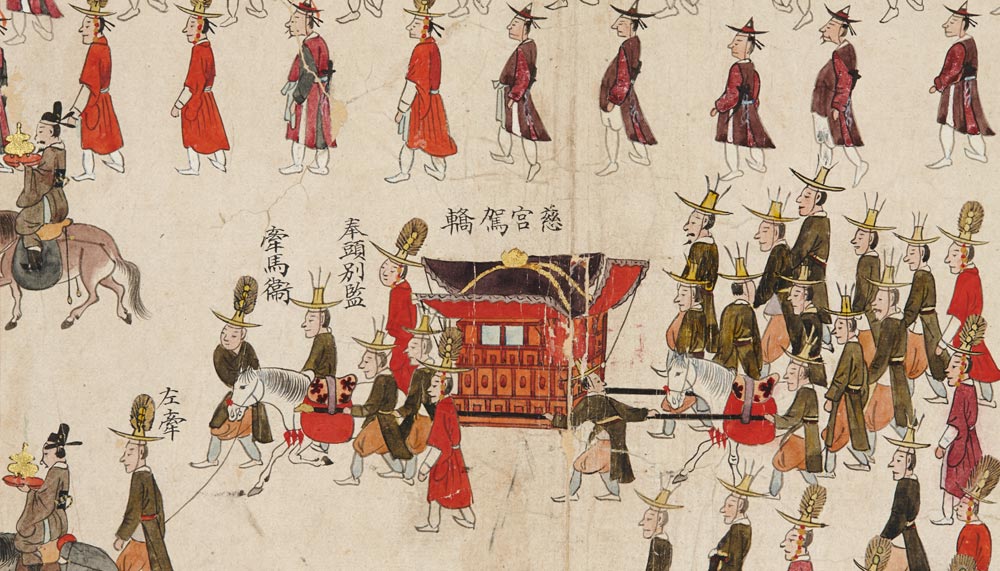 慈宮駕轎
奉頭別監
牽馬衛
左牽